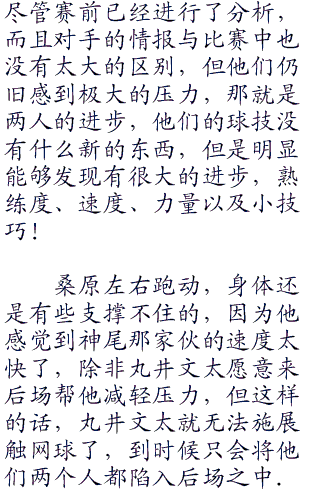 尽管赛前已经进行了分析，
而且对手的情报与比赛中也
没有太大的区别，但他们仍
旧感到极大的压力，那就是
两人的进步，他们的球技没
有什么新的东西，但是明显
能够发现有很大的进步，熟
练度、速度、力量以及小技
巧！
桑原左右跑动，身体还
是有些支撑不住的，因为他
感觉到神尾那家伙的速度太
快了，除非丸井文太愿意来
后场帮他减轻压力，但这样
的话，丸井文太就无法施展
触网球了，到时候只会将他
们两个人都陷入后场之中．